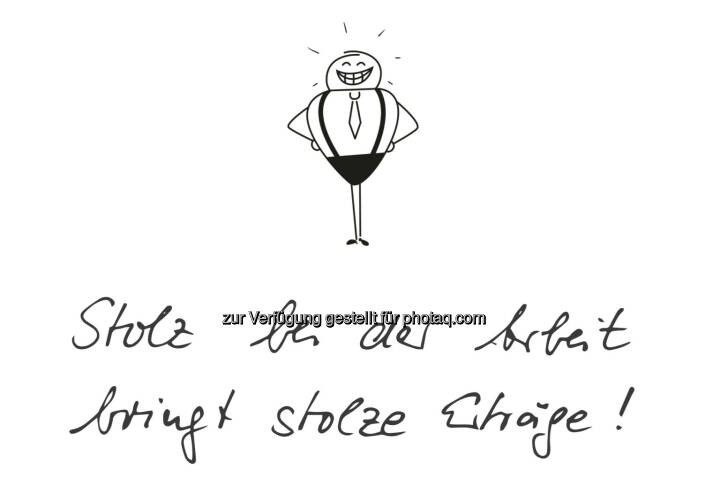 zur Verfügung gestellt für photaq.com
Stolz bei der Arbeit
bringt stolze Erträge!